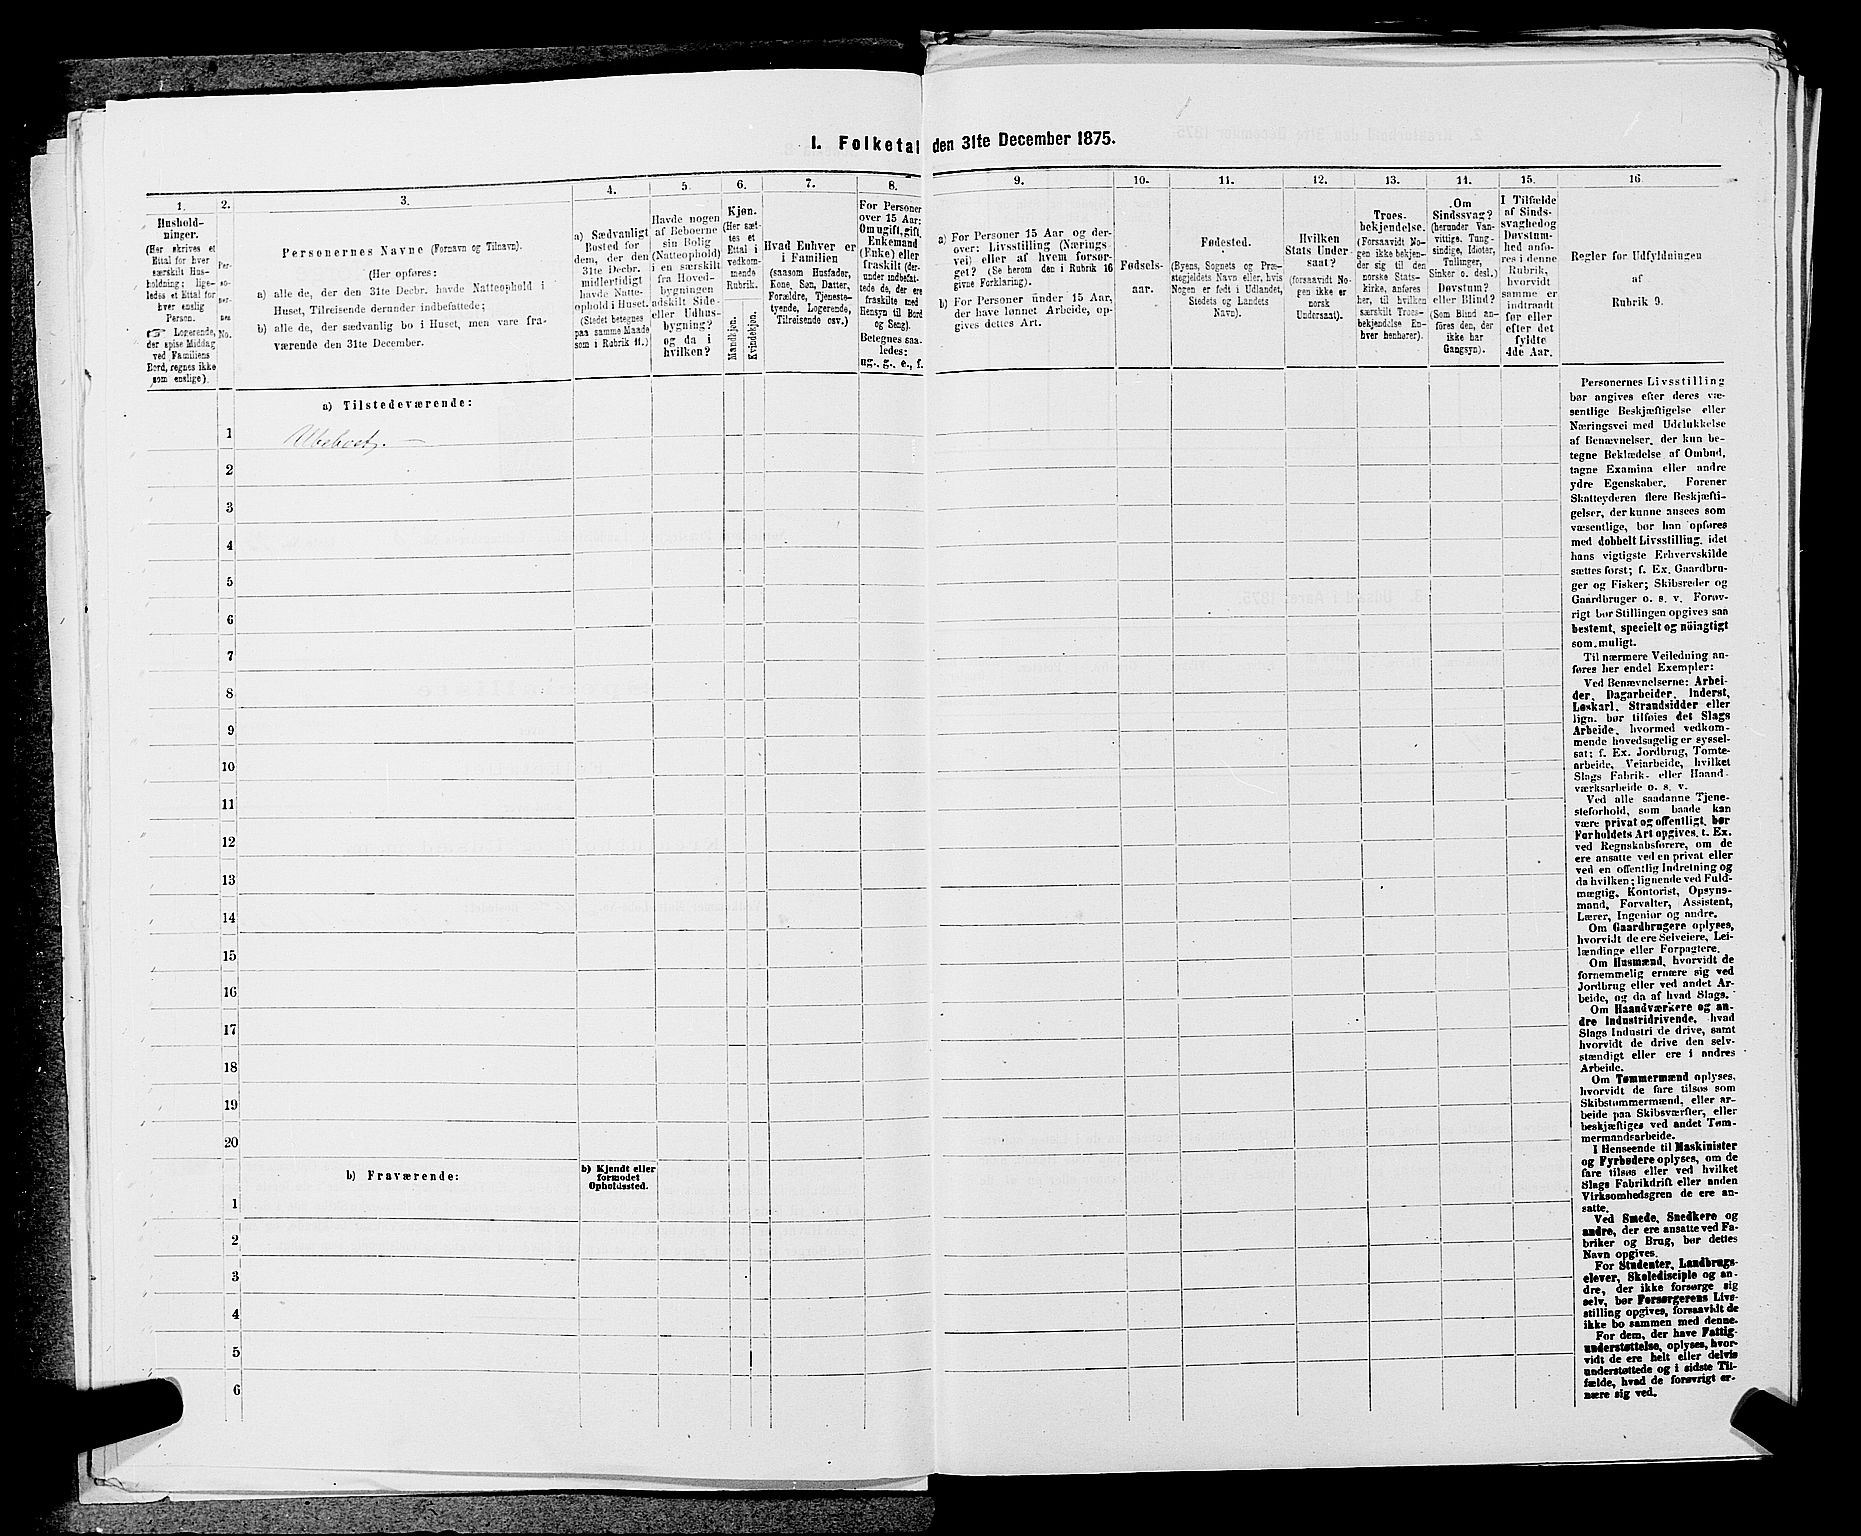 I. Folketal den 31te December 1875.
1.
Hushold-
ninger.
(Her skrives et
Ettal for hver
særskilt Hus-
holdning; lige-
ledes et Ettal for
hver enslig
Person.
☞ Logerende,
der spise Middag
ved Familiens
Bord, regnes ikke
som enslige).
2.
Per-
so-
ner-
nes
No.
3.
Personernes Navne (Fornavn og Tilnavn).
(Her opføres:
a) alle de, der den 31te Decbr. havde Natteophold i
Huset, Tilreisende derunder indbefattede;
b) alle de, der sædvanlig bo i Huset, men vare fra-
værende den 31te December.
4.
a) Sædvanligt
Bosted for
dem, der den
31te Decbr.
midlertidigt
havde Natte-
ophold i Huset.
(Stedet betegnes
paa samme Maade
som i Rubrik 11.)
5.
Havde nogen
af Beboerne
sin Bolig
(Natteophold)
i en særskilt
fra Hoved-
bygningen
adskilt Side-
eller Udhus-
bygning?
og da i
hvilken?
6.
Kjøn.
(Her sæt-
tes et
Ettal i
vedkom-
mende
Rubrik.
Mandkjøn.
Kvindekjøn.
7.
Hvad Enhver er
i Familien
(saasom Husfader,
Kone, Søn, Datter,
Forældre, Tjeneste-
tyende, Logerende,
Tilreisende osv.)
8.
For Personer
over 15 Aar:
Om ugift, gift,
Enkemand
(Enke) eller
fraskilt (der-
under indbefat-
tede de, der ere
fraskilte med
Hensyn til Bord
og Seng).
Betegnes saa-
ledes:
ug., g., e., f.
9.
a) For Personer 15 Aar og der-
over: Livsstilling (Nærings-
vei) eller af hvem forsør-
get? (Se herom den i Rubrik 16
givne Forklaring).
b) For Personer under 15 Aar,
der have lønnet Arbeide, op-
gives dettes Art.
10.
Fødsels-
aar.
11.
Fødested.
(Byens, Sognets og Præ-
stegjeldets Navn eller, hvis
Nogen er født i Udlandet,
Stedets og Landets
Navn).
12.
Hvilken
Stats Under-
saat?
(forsaavidt No-
gen ikke er
norsk
Undersaat).
13.
Troes-
bekjendelse.
(Forsaavidt No-
gen ikke bekjen-
der sig til den
norske Stats-
kirke, anføres
her, til hvilken
særskilt Troes-
bekjendelse En-
hver henhører).
14.
Om
Sindssvag?
(herunder Van-
vittige, Tung-
sindige, Idioter,
Tullinger,
Sinker o. desl.)
Døvstum?
eller Blind?
(Som Blind an-
føres den, der
ikke har
Gangsyn).
15.
I Tilfælde
af Sinds-
svaghed og
Døvstum-
hed anfø-
res i denne
Rubrik,
hvorvidt
samme er
indtraadt
før eller
efter det
fyldte
4de Aar.
16.
Regler for Udfyldningen
af
Rubrik 9.
Personernes Livsstilling
bør angives efter deres væ-
sentlige Beskjæftigelse eller
Næringsvei med Udelukkelse
af Benævnelser, der kun be-
tegne Beklædelse af Ombud,
tagne Examina eller andre
ydre Egenskaber. Forener
Skatteyderen flere Beskjæfti-
gelser, der kunne ansees som
væsentlige, bør han opføres
med dobbelt Livsstilling, idet
hans vigtigste Erhvervskilde
sættes først; f. Ex. Gaardbru-
ger og Fisker; Skibsreder og
Gaardbruger o. s. v. Forøv-
rigt bør Stillingen opgives saa
bestemt, specielt og nöiagtigt
som muligt.
Til nærmere Veiledning an-
føres her endel Exempler:
Ved Benævnelserne: Arbei-
der, Dagarbeider, Inderst,
Løskarl, Strandsidder eller
lign. bør tilføies det Slags
Arbeide, hvormed vedkom-
mende hovedsagelig er syssel-
sat; f. Ex. Jordbrug, Tomte-
arbeide, Veiarbeide, hvilket
Slags Fabrik- eller Haand-
værksarbeide o. s. v.
Ved alle saadanne Tjene-
steforhold, som baade kan
være privat og offentligt, bør
Forholdets Art opgives, t. Ex.
ved Regnskabsførere, om de
ere ansatte ved en privat eller
ved en offentlig Indretning og
da hvilken; lignende ved Fuld-
mægtig, Kontorist, Opsyns-
mand, Forvalter, Assistent,
Lærer, Ingeniør og andre.
Om Gaardbrugere oplyses,
hvorvidt de ere Selveiere, Lei-
lændinge eller Forpagtere.
Om Husmænd, hvorvidt de
fornemmelig ernære sig ved
Jordbrug eller ved andet Ar-
beide, og da af hvad Slags.
Om Haandværkere og an-
dre Industridrivende, hvad
Slags Industri de drive, samt
hvorvidt de drive den selv-
stændigt eller ere i andres
Arbeide.
Om Tømmermænd oplyses,
hvorvidt de fare tilsøs som
Skibstømmermænd, eller ar-
beide paa Skibsværfter, eller
beskjæftiges ved andet Tøm-
mermandsarbeide.
I Henseende til Maskinister
og Fyrbødere oplyses, om de
fare tilsøs eller ved hvilket
Slags Fabrikdrift eller anden
Virksomhedsgren de ere an-
satte.
Ved Smede, Snedkere og
andre, der ere ansatte ved Fa-
briker og Brug, bør dettes
Navn opgives.
For Studenter, Landbrugs-
elever, Skoledisciple og an-
dre, der ikke forsørge sig
selv, bør Forsørgerens Livs-
stilling opgives, forsaavidt de
ikke bo sammen med denne.
For dem, der have Fattig-
understøttelse, oplyses, hvor-
vidt de ere helt eller delvis
understøttede og i sidste Til-
fælde, hvad de forøvrigt er-
nære sig ved.
a) Tilstedeværende:
1 Ubeboet.
2
3
4
5
6
7
8
9
10
11
12
13
14
15
16
17
18
19
20
b) Fraværende:
b) Kjendt eller
formodet
Opholdssted.
1
2
3
4
5
6